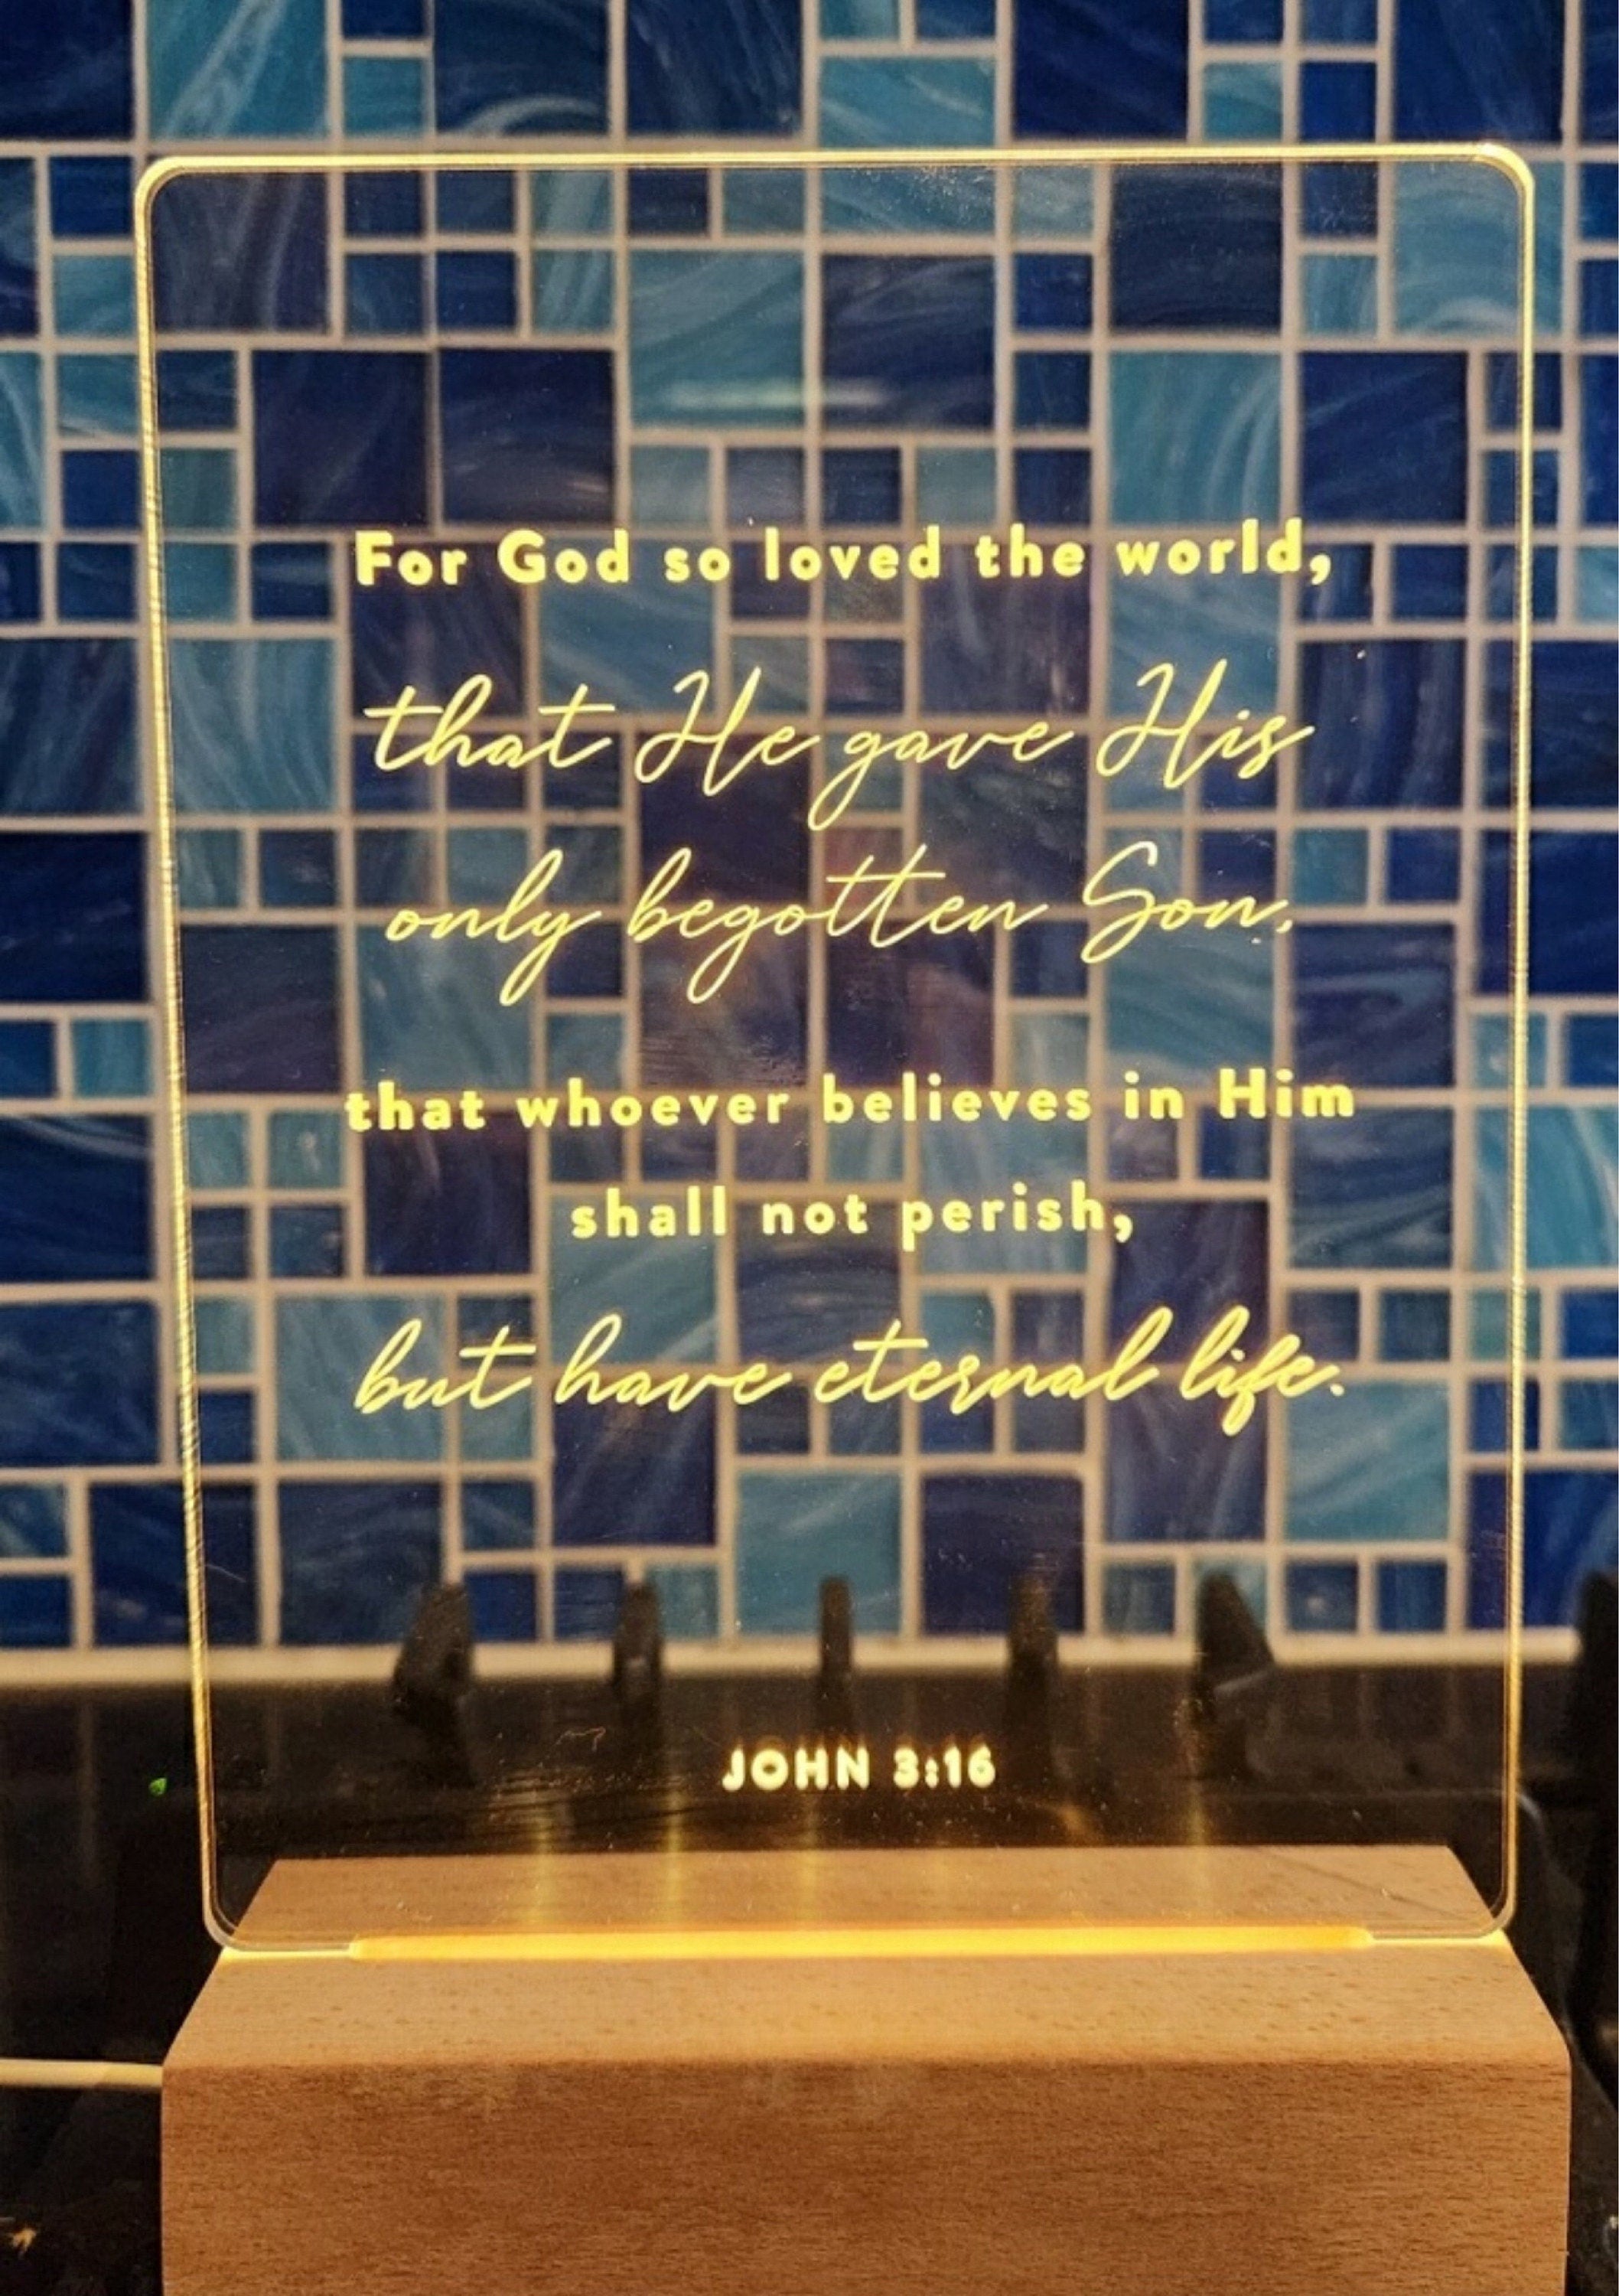 For God so loved the world,
that He gave His
only begotten Son,
that whoever believes in Him
shall not perish,
but have eternal life.
JOHN 3:16